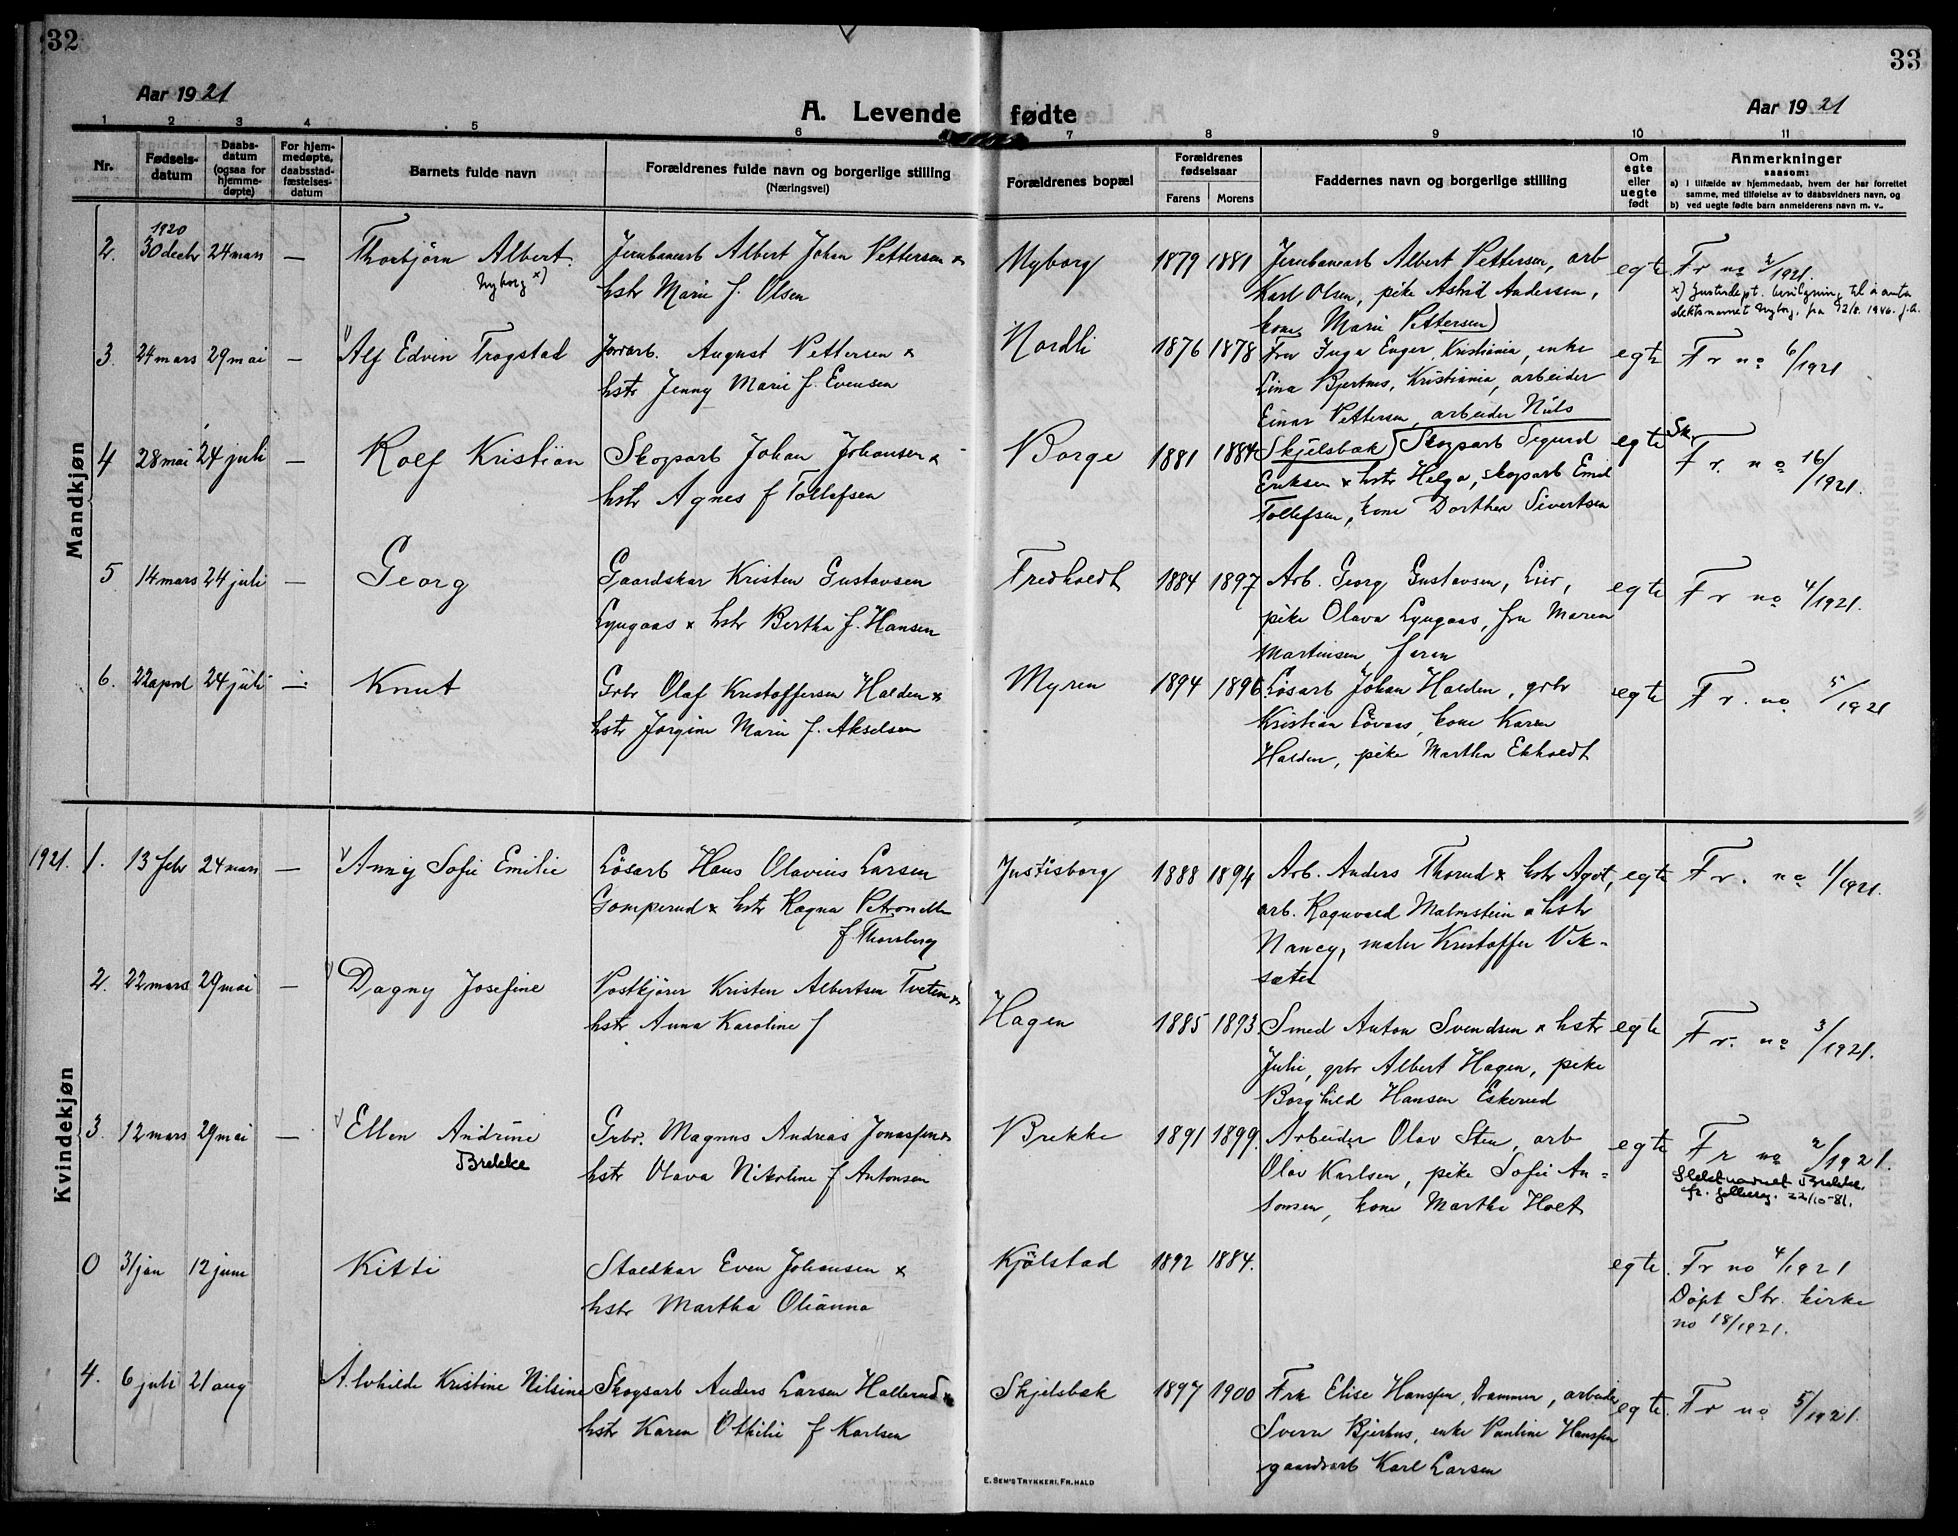 32
33
Aar 1921
A. Levende fødte
Aar 1921
1 2 3 4 5 6 7 8 9 10 11
Nr.
Fødsels-
datum
Daabs-
datum
(ogsaa for
hjemme-
døpte)
For hjem-
medøpte,
daabsstad-
fæstelses-
datum
Barnets fulde navn
Forældrenes fulde navn og borgerlige stilling
(Næringsvei)
Forældrenes bopæl
Forældrenes
fødselsaar
Farens Morens
Faddernes navn og borgerlige stilling
Om
egte
eller
uegte
født
Anmerkninger
saasom:
a) i tilfælde av hjemmedaab, hvem der har forrettet
samme, med tilføielse av to daabsvidners navn, og
b) ved uegte fødte barn anmelderens navn m. v..
Mandkjøn
1920
2. 30 decbr 24 mars — Thorbjörn Albert
Nyborg x)
Jernbanearb Albert Johan Pettersen x
hstr Marie f. Olsen
Nyborg 1879 1881
Jernbanearb Albert Pettersen, arb
Karl Olsen, pike Astrid Andersen,
kone Marie Pettersen
egte
Fr no 2/1921.
x) Justisdept. bevilgning til å anta
slektsnavnet Nyborg, fra 12/8. 1946.
3. 24 mars 29 mai — Alf Edvin Trogstad
Jordarb. August Pettersen x
hstr Jenny Marie f. Evensen
Nordli 1876 1878
Fru Inga Enger, Kristiania, enke
Lina Bjertnes, Kristiania, arbeider
Einar Pettersen, arbeider Nils
Skjelsbæk
egte
Fr no 6/1921
4 28 mai 24 juli — Rolf Kristian
Skogsarb Johan Johansen x
hstr Agnes f Tollefsen
Borge 1881 1884
Skogsarb Sigurd
Eriksen x hstr Helga, skogsarb Emil
Tollefsen, kone Dorthea Sivertsen
egte
Sk.
Fr. no 16/1921.
5 14 mars 24 juli — Georg
Gaardskar Kristen Gustavsen
Lyngaas x hstr Bertha f. Hansen
Fredholdt 1884 1897
Arb. Georg Gustavsen, Lier,
pike Olava Lyngaas, fru Maren
Martinsen
egte
Fr no 4/1921.
6. 22 april 24 juli — Knut
Grbr Olaf Kristoffersen Halden x
hstr Jörgine Marie f. Akselsen
Myren 1894 1896
Løsarb Johan Halden, grbr
Kristian Lövaas, kone Karen
Halden, pike Martha Ekholdt
egte
Fr. no 5/1921
Kvindekjøn
1921. 1. 13 febr 24 mars — Anny Sofie Emilie
Lösarb Hans Olavius Larsen
Gomperud x hstr Ragna Petronelle
f. Thorsberg
Justisborg 1888 1894
Arb. Anders Thorud x hstr Agot,
arb. Ragnvald Malmstein x hstr
Nancy, maler Kristoffer Vik-
sæter
egte
Fr. no 1/1921.
2. 22 mars 29 mai — Dagny Josefine
Postkjører Kristen Albertsen Tveten x
hstr Anna Karoline f
Hagen 1885 1893
Smed Anton Svendsen x hstr
Julie, grbr Albert Hagen, pike
Borghild Hansen Eskerud
egte
Fr. no 3/1921.
3. 12 mars 29 mai — Ellen Andrine
Brekke
Grbr. Magnus Andreas Jonassen x
hstr Olava Nikoline f Antonsen
Brekke 1891 1899
Arbeider Olav Sten, arb
Olav Karlsen, pike Sofie An-
tonsen, kone Martha Holt
egte
Fr no 2/1921.
Slektsnavnet Brekke
22/10-81.
0 31 jan 12 juni Kitti
Staldkar Even Johansen x
hstr Martha Olianna
Kjölstad 1892 1884.
egte.
Fr no 4/1921
Döpt Str. kirke
no 18/1921.
4. 6 juli 21 aug Alvhilde Kristine Nilsine
Skogsarb Anders Larsen Hallerud x
hstr Karen Othilie f Karlsen
Skjelsbæk 1897 1900
Frk Elise Hanssen, Drammen, arbeider
Sverre Bjertnes, enke Pauline Hanssen
gaardsarb Karl Larsen
egte.
Fr no 5/1921.
E. SEM'S TRYKKERI, FR.HALD